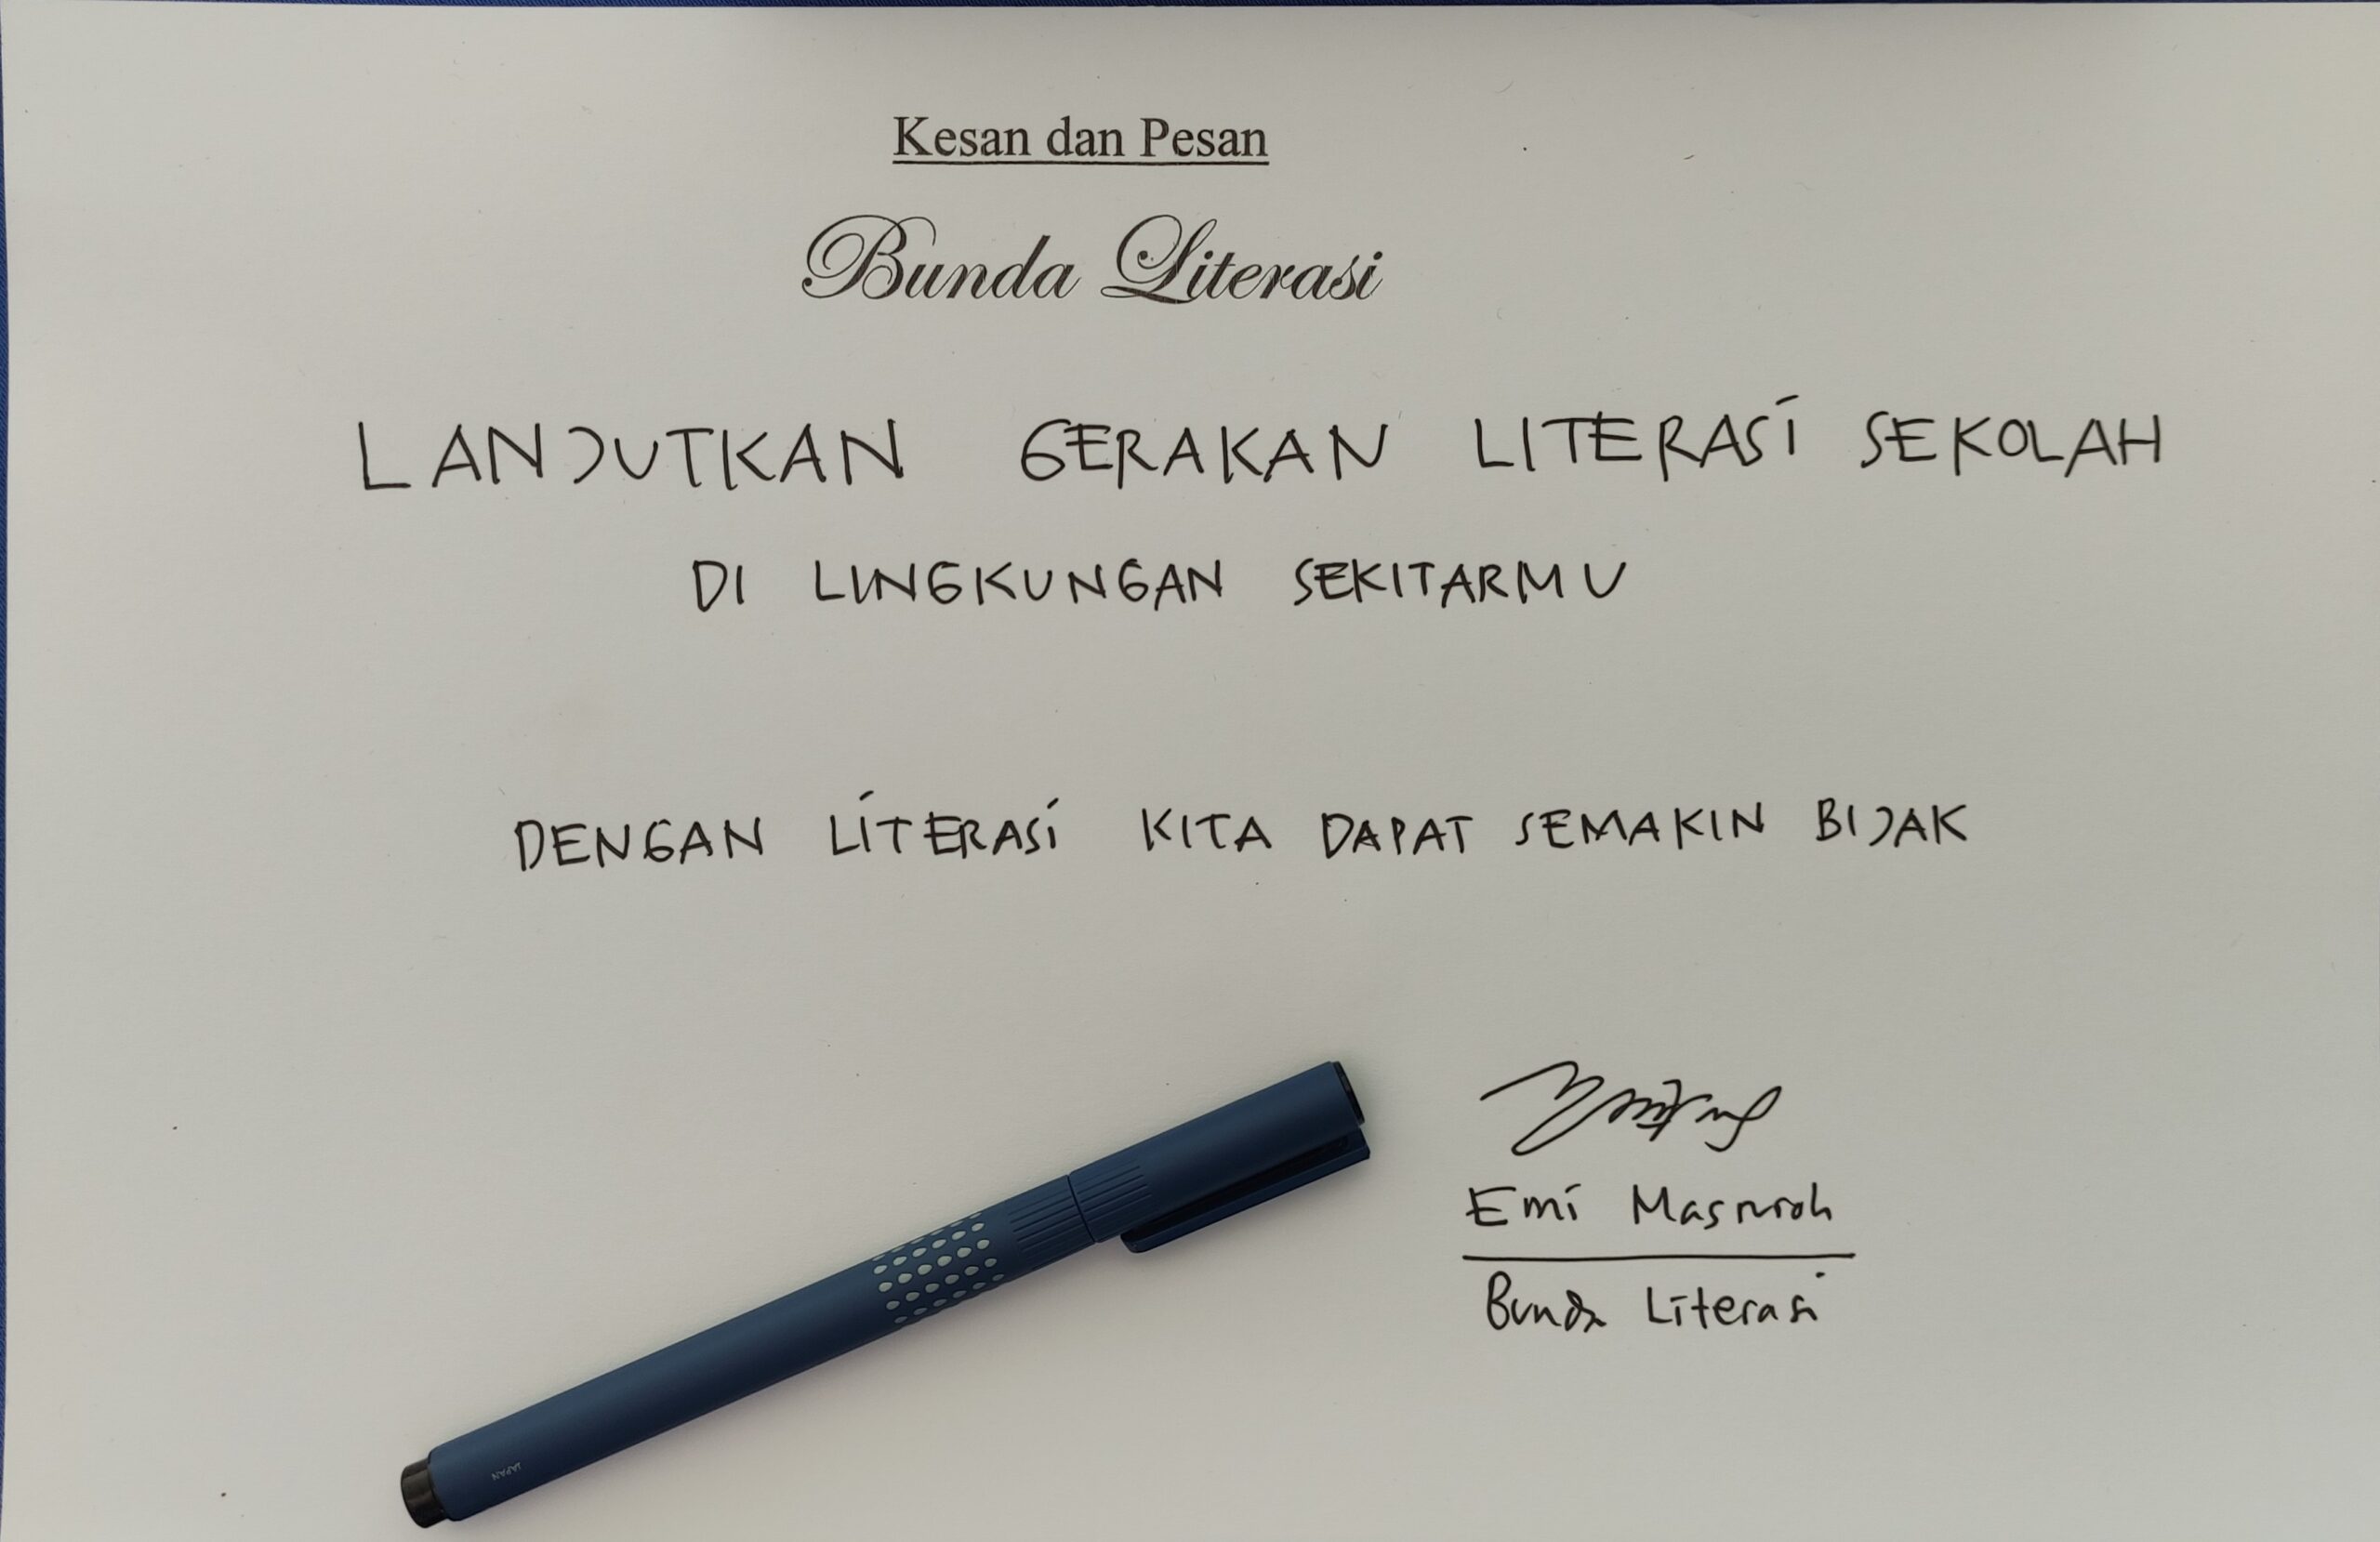 Kesan dan Pesan
Bunda Literasi
LANJUTKAN GERAKAN LITERASI SEKOLAH
DI LINGKUNGAN SEKITARMU
DENGAN LITERASI KITA DAPAT SEMAKIN BIJAK
Emi Masruroh
Bunda Literasi
JAPAN